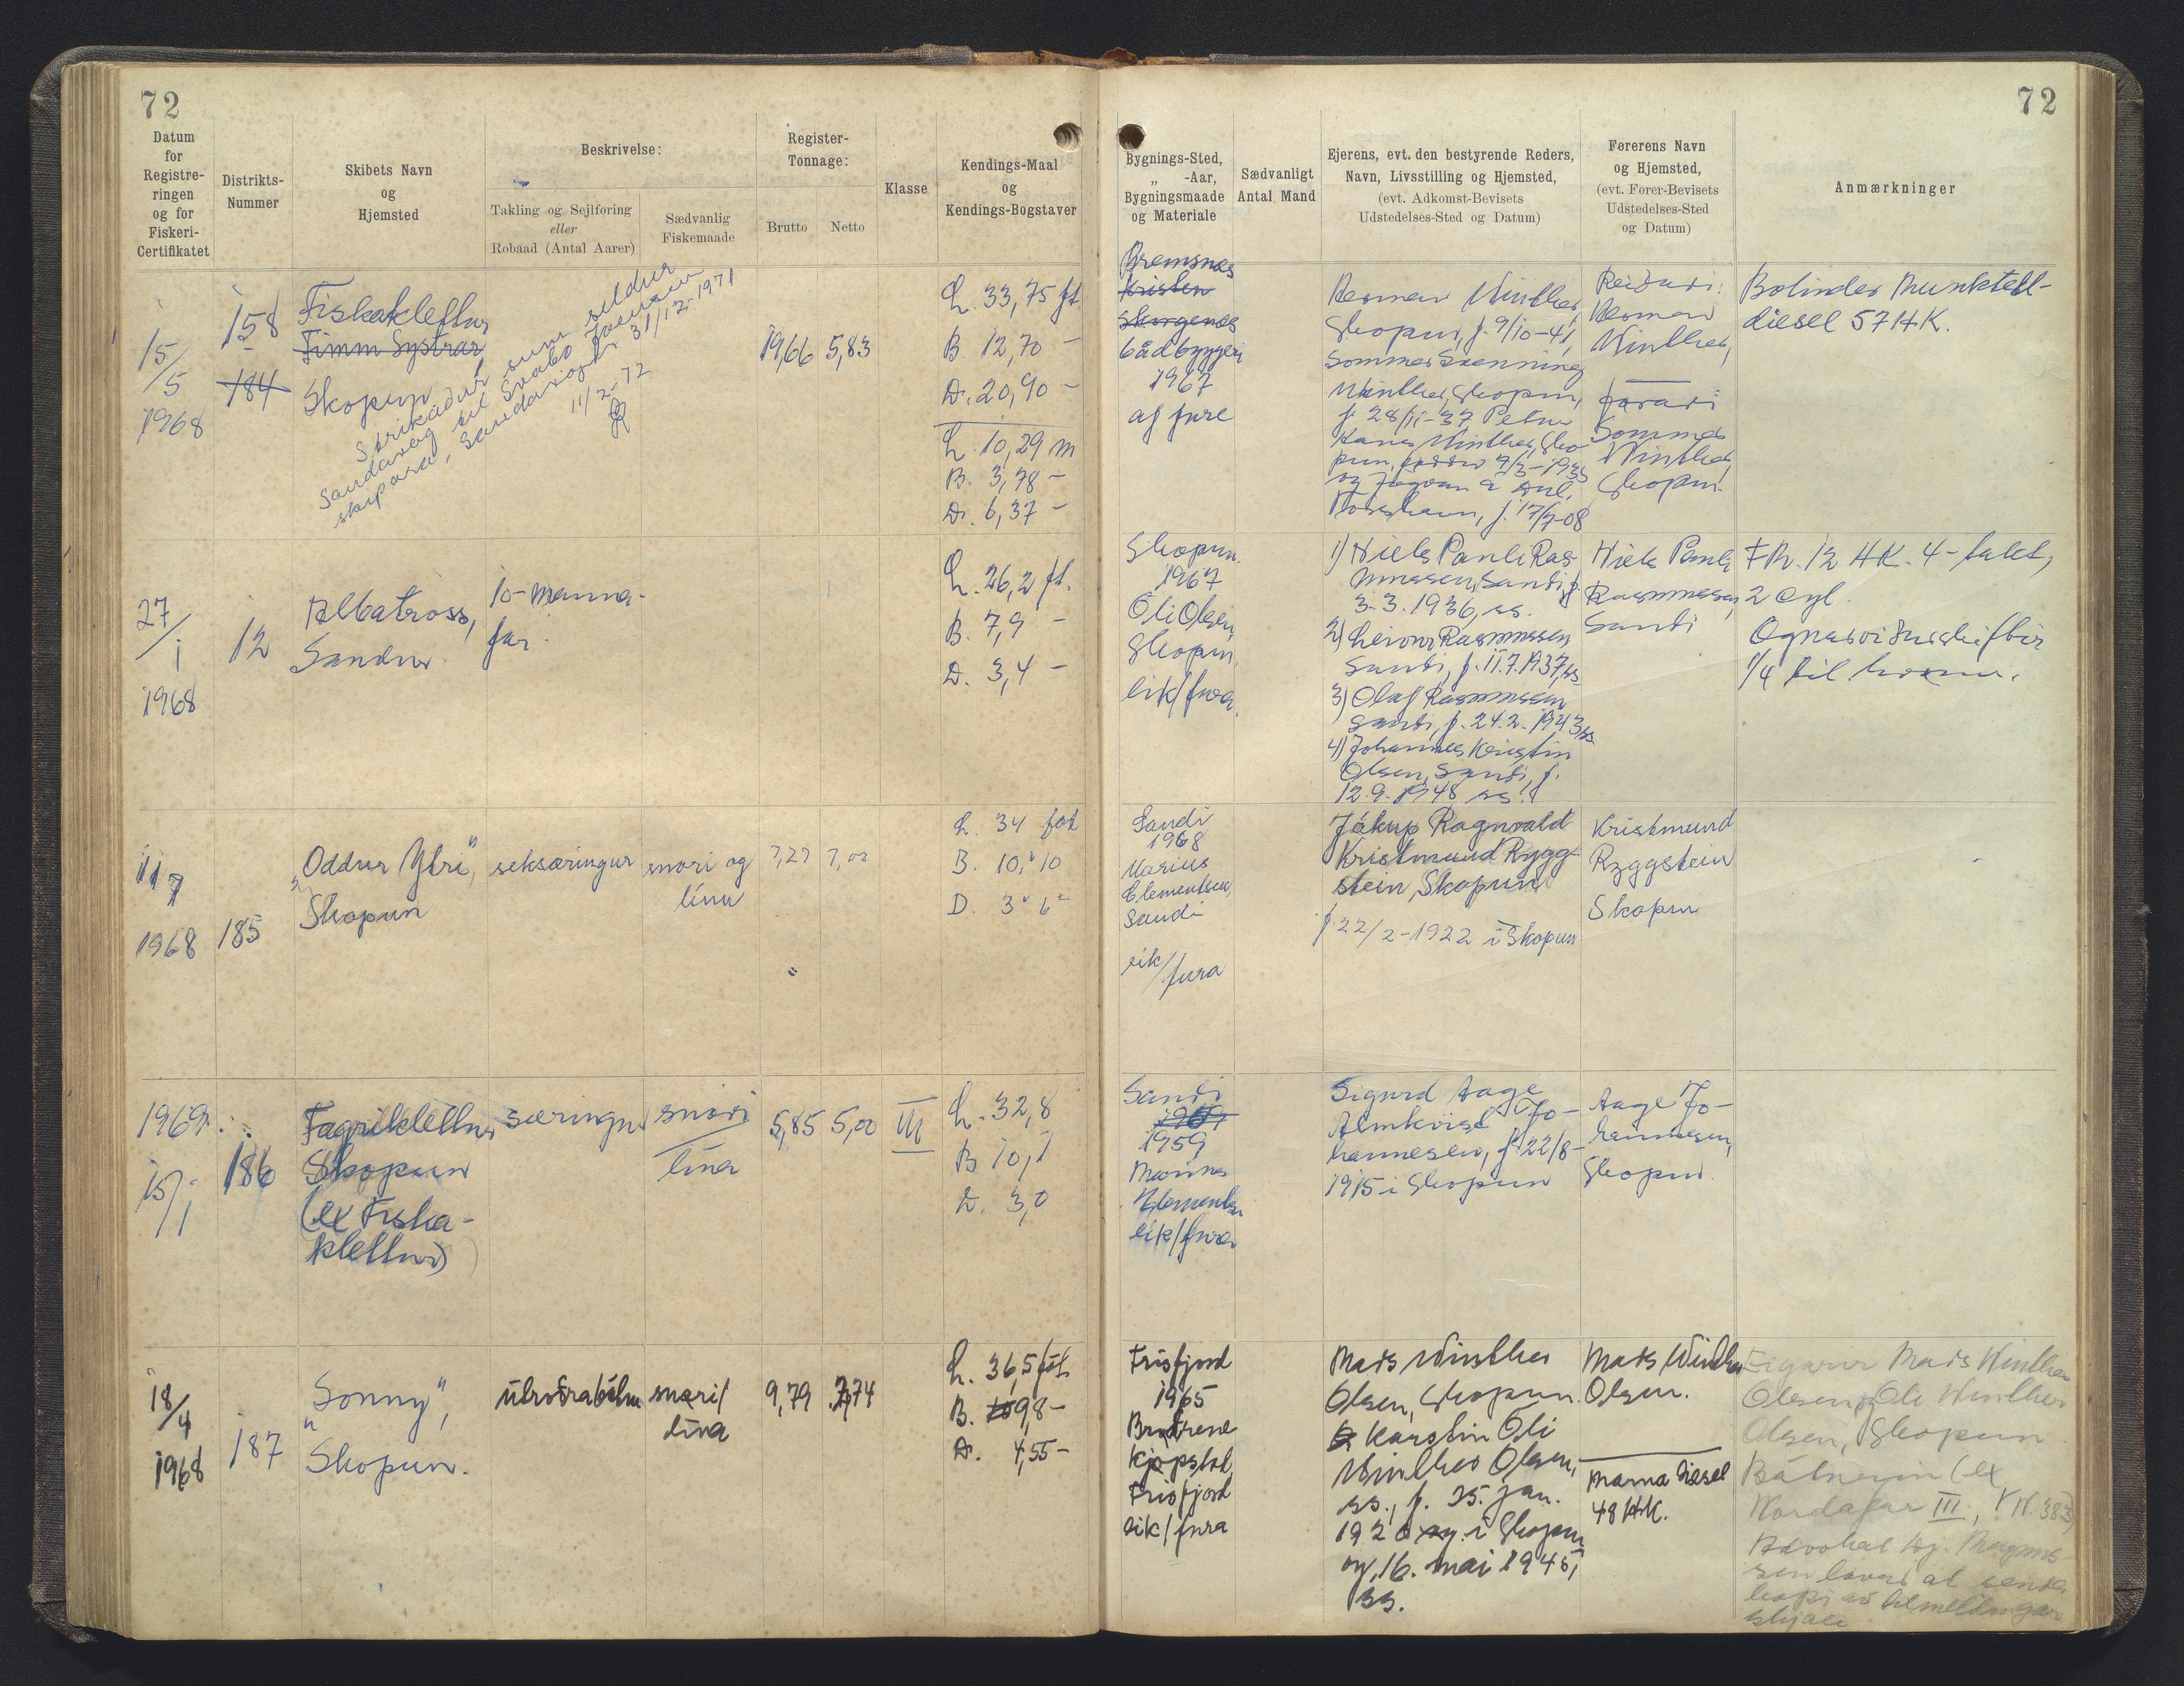 72
72
Datum
for
Registre-
ringen
og for
Fiskeri-
Certifikatet
Distrikts-
Nummer
Skibets Navn
og
Hjemsted
Beskrivelse:
Takling og Sejlføring
eller
Robaad (Antal Aarer)
Sædvanlig
Fiskemaade
Register-
Tonnage:
Brutto Netto
Klasse
Kendings-Maal
og
Kendings-Bogstaver
Bygnings-Sted,
„ -Aar,
Bygningsmaade
og Materiale
Sædvanligt
Antal Mand
Ejerens, evt. den bestyrende Reders,
Navn, Livsstilling og Hjemsted,
(evt. Adkomst-Bevisets
Udstedelses-Sted og Datum)
Førerens Navn
og Hjemsted,
(evt. Fører-Bevisets
Udstedelses-Sted
og Datum)
Anmærkninger
15/5
1968
158
184
Fiskaklettur
Fimm Systrar
Skopun
Strikaður sum seldur
11/2-72
19,66 5,83
L. 33,75 ft.
B. 12,70 -
D. 20,90 -
L. 10,29 m
B. 3,78 -
D. 6,37 -
Bremsnes
Kristen
båtbyggeri
1967
af fure
Skopun, f. 9/10-41,
Winther, Skopun,
f. 28/11-37 Petur
Hans Winther, Sko-
pun, føddur 7/3-1935
Tórshavn, f. 17/7-08
Reiðari:
Winther,
førari
Sommer
Winther,
Skopun.
Bolinder Munktell-
diesel 57 HK.
27/1
1968
12
Albatross,
Sandur.
10-manna-
far.
L. 26,2 ft.
B. 7,9 -
D. 3,4 -
Skopun.
1967
Óli Olsen,
Skopun,
eik/fura.
1) Niels Pauli Ras-
mussen, Sandi, f.
3.3.1936, ss.
2) Leivur Rasmussen
Sandi, f. 11.7.1937, ss
3) Olaf Rasmussen
Sandi, f. 24.2.1943, ss
4) Johannes Kristin
Olsen, Sandi, f.
12.9.1948 ss.
Niels Pauli
Rasmussen,
Sandi
FM. 12 HK. 4-takt,
2 cyl.
Ognarviðurskiftir
1/4 til hvønn.
1/7
1968
185
„Oddur Ytri",
Skopun
seksæringur
snøri og
línu
7,27 7,00
L. 34 fot
B. 10" 10
D. 3" 6"
Sandi
1968
Marius
Clementsen,
Sandi
eik/fura
Jákup Ragnvald
Kristmund Rygg-
stein, Skopun
f. 22/2-1922 í Skopun
Kristmund
Ryggstein
Skopun
1969
15/1
186
Fagriklettur
Skopun
(ex Fiska-
klettur)
snøri
lína
5,85 5,00
III
L. 32,8
B 10,1
D. 3,0
Sandi
1959
Marius
Klementsen
eik/fura
Sigurd Aage
Almkvist Jo-
hannesen, f. 22/8-
1915 í Skopun
Aage Jo-
hannesen,
Skopun.
18/4
1968
187
„Sonny",
Skopun.
útróðrarbátur
snøri/
lína
9,79 7,74
L. 36,5 fót
B. 9,8 -
D. 4,55 -
1965
Brødrene
eik/fura
Mads Winther
Olsen, Skopun.
Karstin Óli
Winther Olsen,
ss., f. 25. jan.
1920 í Skopun
og 16. mai 1945,
ss.
Mads Winther
Olsen.
Marna Diesel
48 HK.
Eigarar Mads Winther
Olsen, og Óli Winther
Olsen, Skopun
Báturin (ex
Nordafar III, VN. 383)
Advokat Hj. Magnus-
sen lovar at senda
kopi av tilmeldingar
skjali